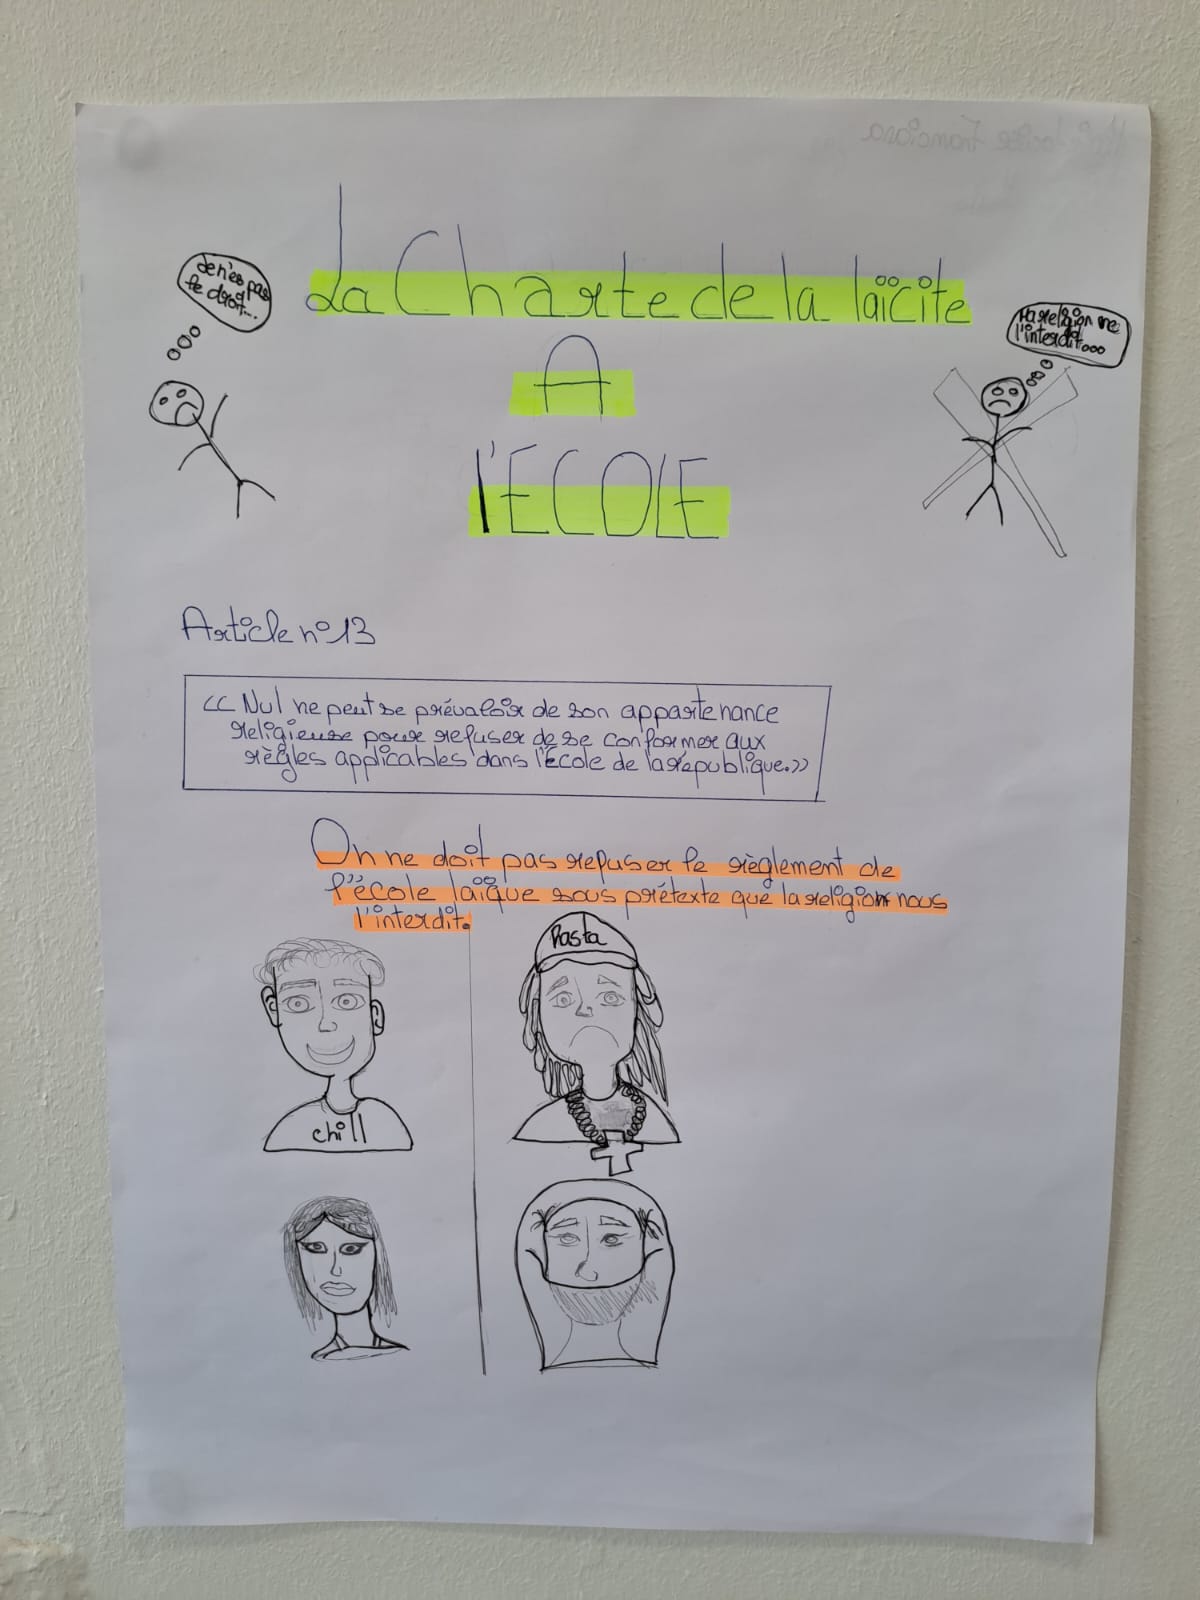 La Charte de la laïcite
A
l'ECOLE
Je n'es pas
le droit...
Ma religion me
l'interdit...
Article n°13
<< Nul ne peut se prévaloir de son appartenance
religieuse pour refuser de se conformer aux
règles applicables dans l'École de la république.>>
On ne doit pas refuser le règlement de
l'école laïque sous prétexte que la religion nous
l'interdit.
Rasta
chill